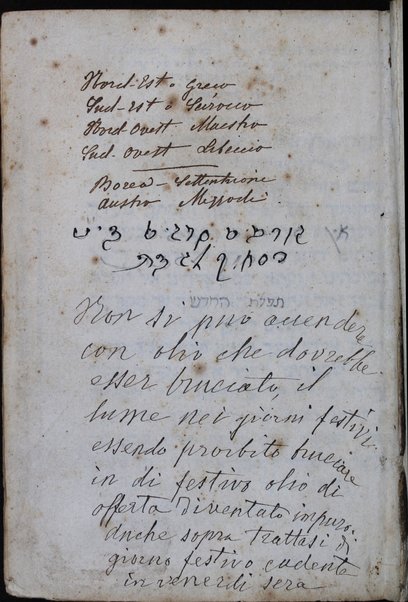 Nord-Est o Greco
Sud-Est o Scirocco
Nord Ovest Maestro
Sud-Ovest Libeccio
Borea - Settentrione
Austro Mezzodì
תפלת החדש
Non si può accendere
con olio che dovrebbe
esser bruciato, il
lume nei giorni festivi
essendo proibito bruciare
in dì festivo olio di
offerta diventato impuro.
Anche sopra trattasi di
giorno festivo cadente
in venerdi sera